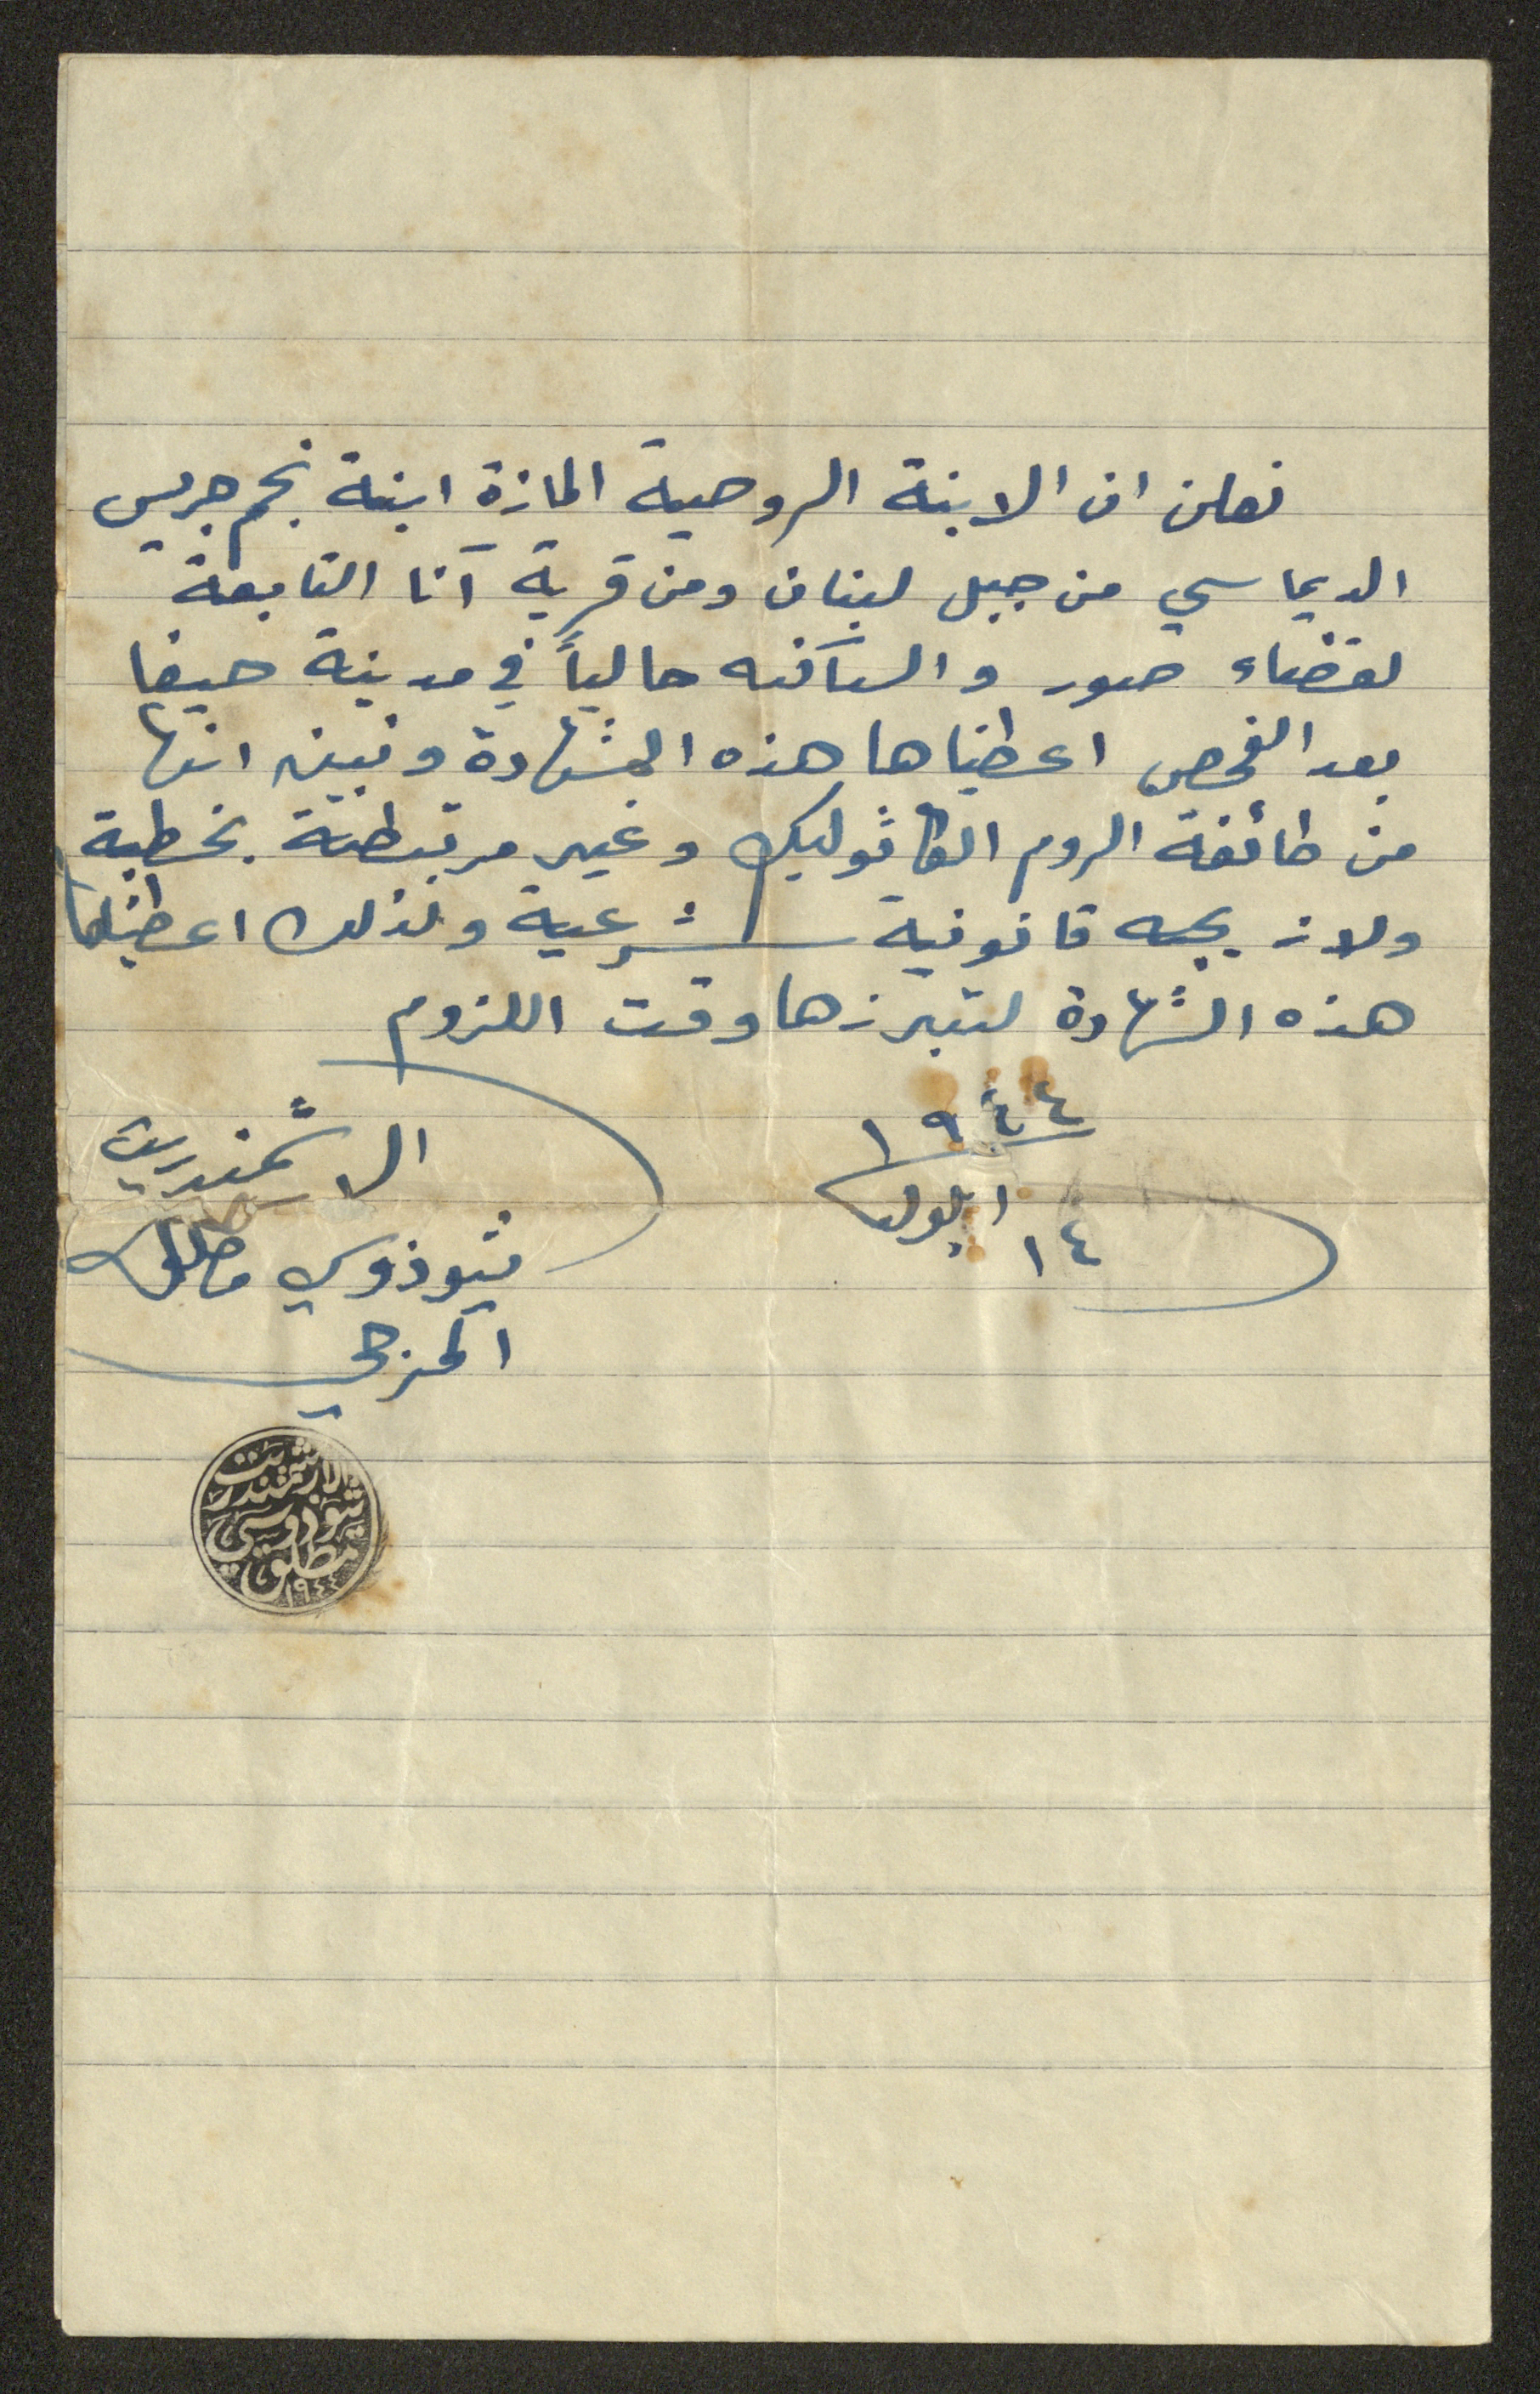 نعلن ان الابنة الروحية المازة ابنة نجم جريس
الديماسي من جبل لبنان ومن قرية آنا التابعة
لقضاء صور والساكنه حالياً في مدينة حيفا
بعد الفحص اعطيناها هذه الشهادة ونبين انها
من طائفة الروم الكاثوليك وغير مرتبطة بخطبة
ولا زيجه قانونية شرعية ولذلك اعطيناها
هذه الشهادة لتبرزها وقت اللزوم
١٩٤٤
١٤ ايلول
الارشمندريت
ثيوذوسي مطلق
الارشمندريت
ثيوذوسي
مطلق
١٩٤٤